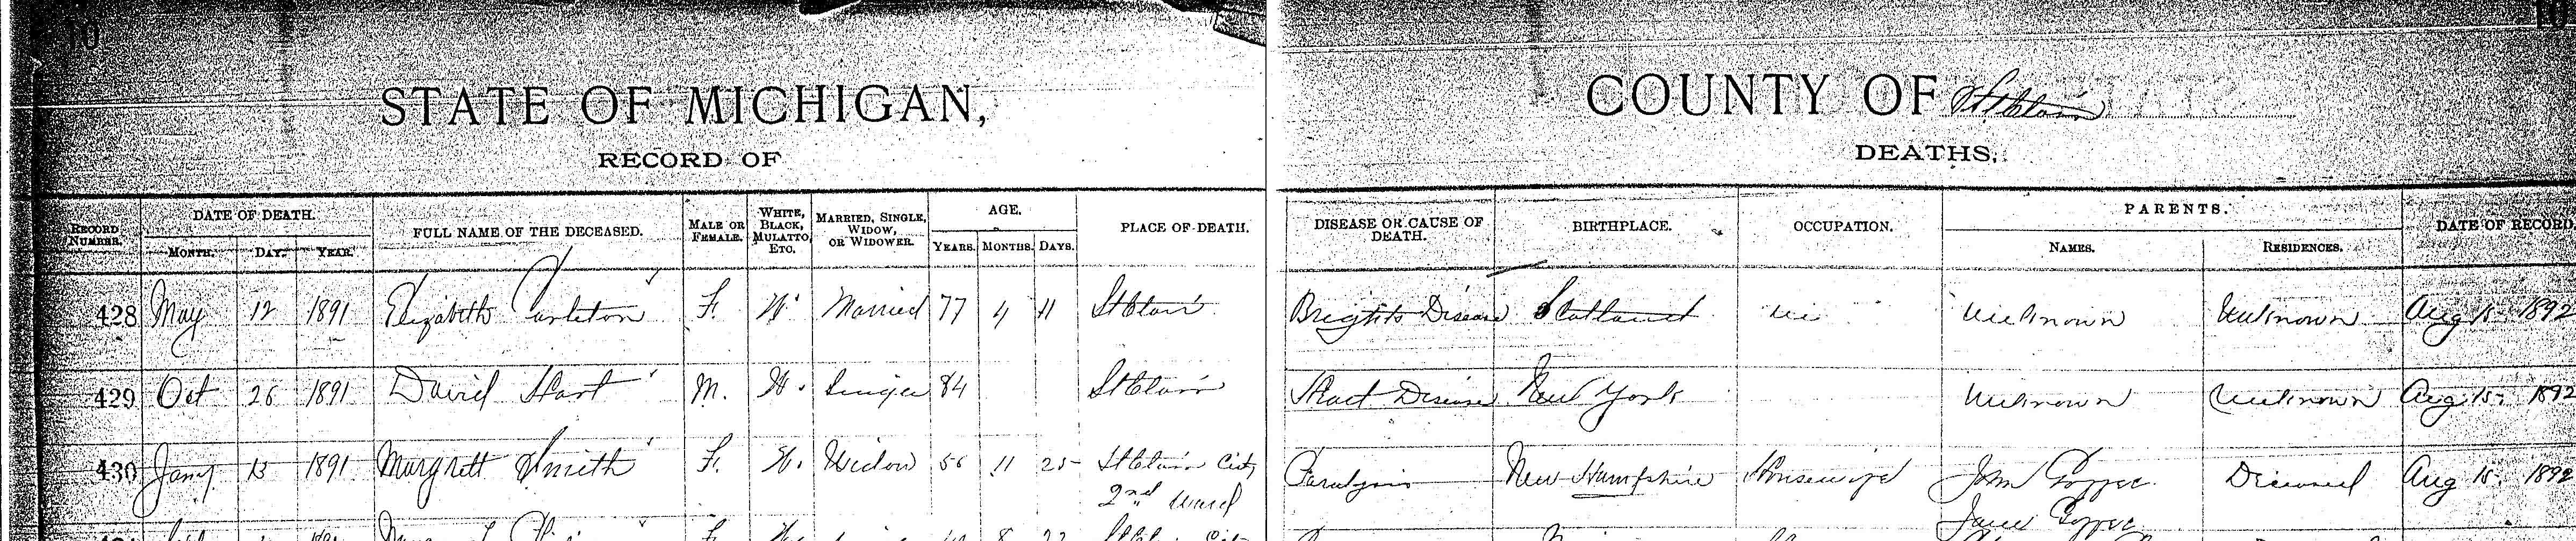 10
10
STATE OF MICHIGAN,
COUNTY OF St Clair
RECORD OF
DEATHS.
RECORD NUMBER. DATE OF DEATH. MONTH. DAY. YEAR. FULL NAME OF THE DECEASED. MALE OR FEMALE. WHITE, BLACK, MULATTO, ETC. MARRIED, SINGLE, WIDOW, OR WIDOWER. AGE. YEARS. MONTHS. DAYS. PLACE OF DEATH. DISEASE OR CAUSE OF DEATH. BIRTHPLACE. OCCUPATION. PARENTS. NAMES. RESIDENCES. DATE OF RECORD.
428 May 12 1891 Elizabeth Carleton F. W. Married 77 4 11 St Clair Brights Disease Scotland Unknown Unknown Aug 15 1892
429 Oct 26 1891 David Hart M. W. Single 84 St Clair Heart Disease New York Unknown Unknown Aug 15, 1892
430 Jany 13 1891 Margrett Smith F. W. Widow 56 11 25 St Clair City Paralysis New Hampshire Housewife John Deceased Aug 15, 1892
2nd Ward